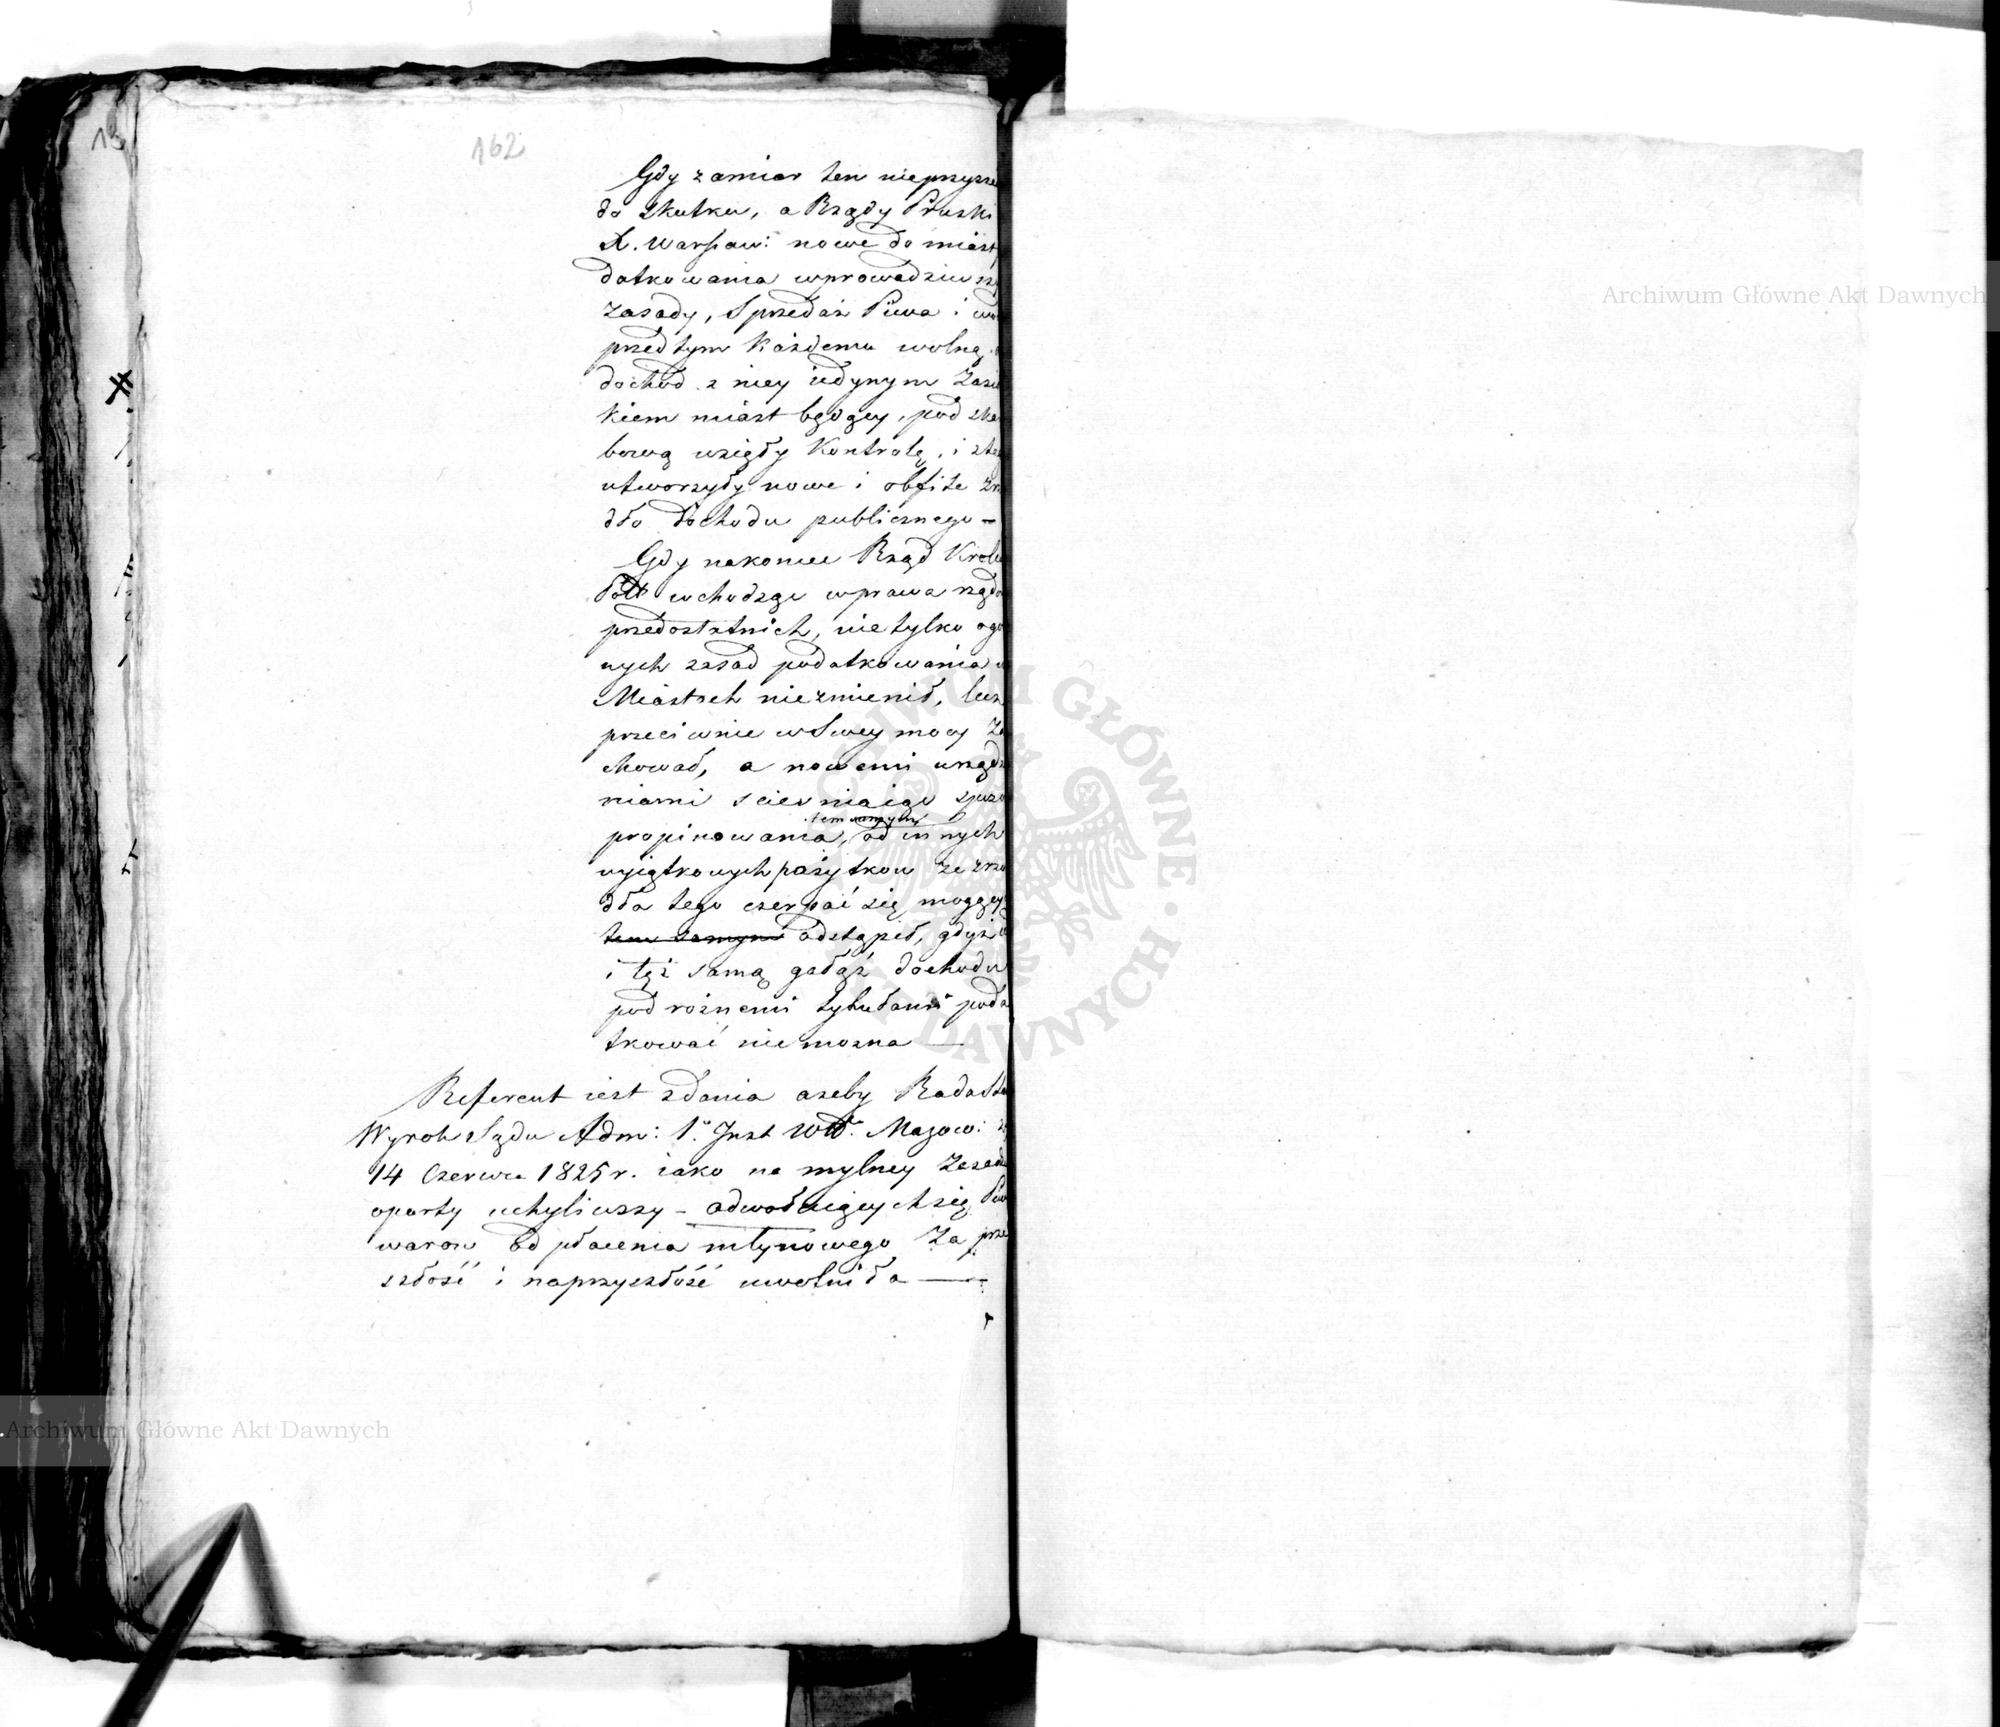 162
Gdy zamiar ten nieprzysze
do skutku, a Rządy Pruski
X. Warszaw: nowe do miast
datkowania wprowadziwszy
zasady, Sprzedaż Piwa i
przedtym każdemu wolną,
dochod z niey iedynym zasi
kiem miast będącey, pod ska
bową wzięły Kontrolę, i
utworzyły nowe i obfite
dło dochodu publicznego –
Gdy nakoniec Rząd Krole
Pol wchodząc w prawa rządo
przedostatnich, nietylko ogo
nych zasad podatkowania
Miastach niezmienił, lecz
przeciwnie w Swey mocy Za
chował, a nowemi urządze
niami scieśniaiąc
tem samym
propinowania, od innych
wyiątkowych pożytkow ze zrzo
dła tego czerpać się mogący
tem samym odstąpił, gdyż
i tęż samą gałąź dochodu
pod rożnemi tytułami poda
tkować nie można —
Referent iest zdania azeby Rada Sta
Wyrok Sądu Adm: 1. Inst Wd. Mazow:
14 Czerwca 1825 r. iako na mylney Zasadz
oparty uchyliwszy – odwołuiących się
warow od płacenia młynowego Za prze
szłość i naprzyszłość uwolniła —
Archiwum Główne Akt Dawnych
Archiwum Główne Akt Dawnych
ARCHIWUM GŁÓWNE AKT DAWNYCH